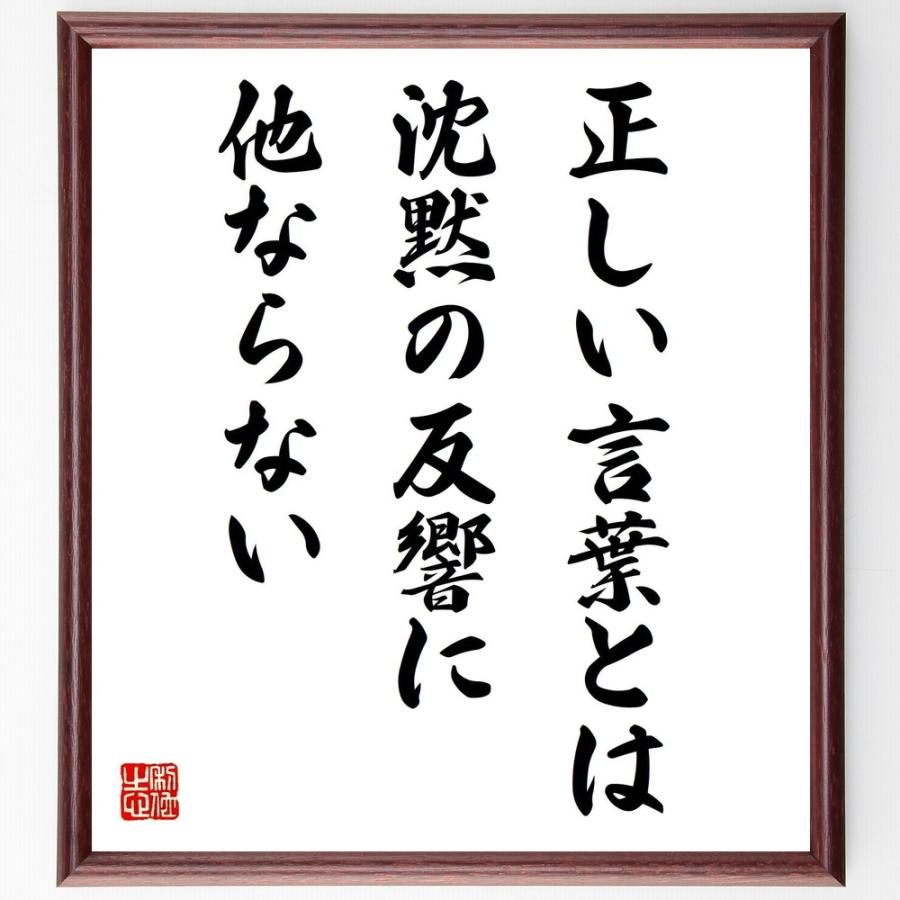 正しい言葉とは
沈黙の反響に
他ならない